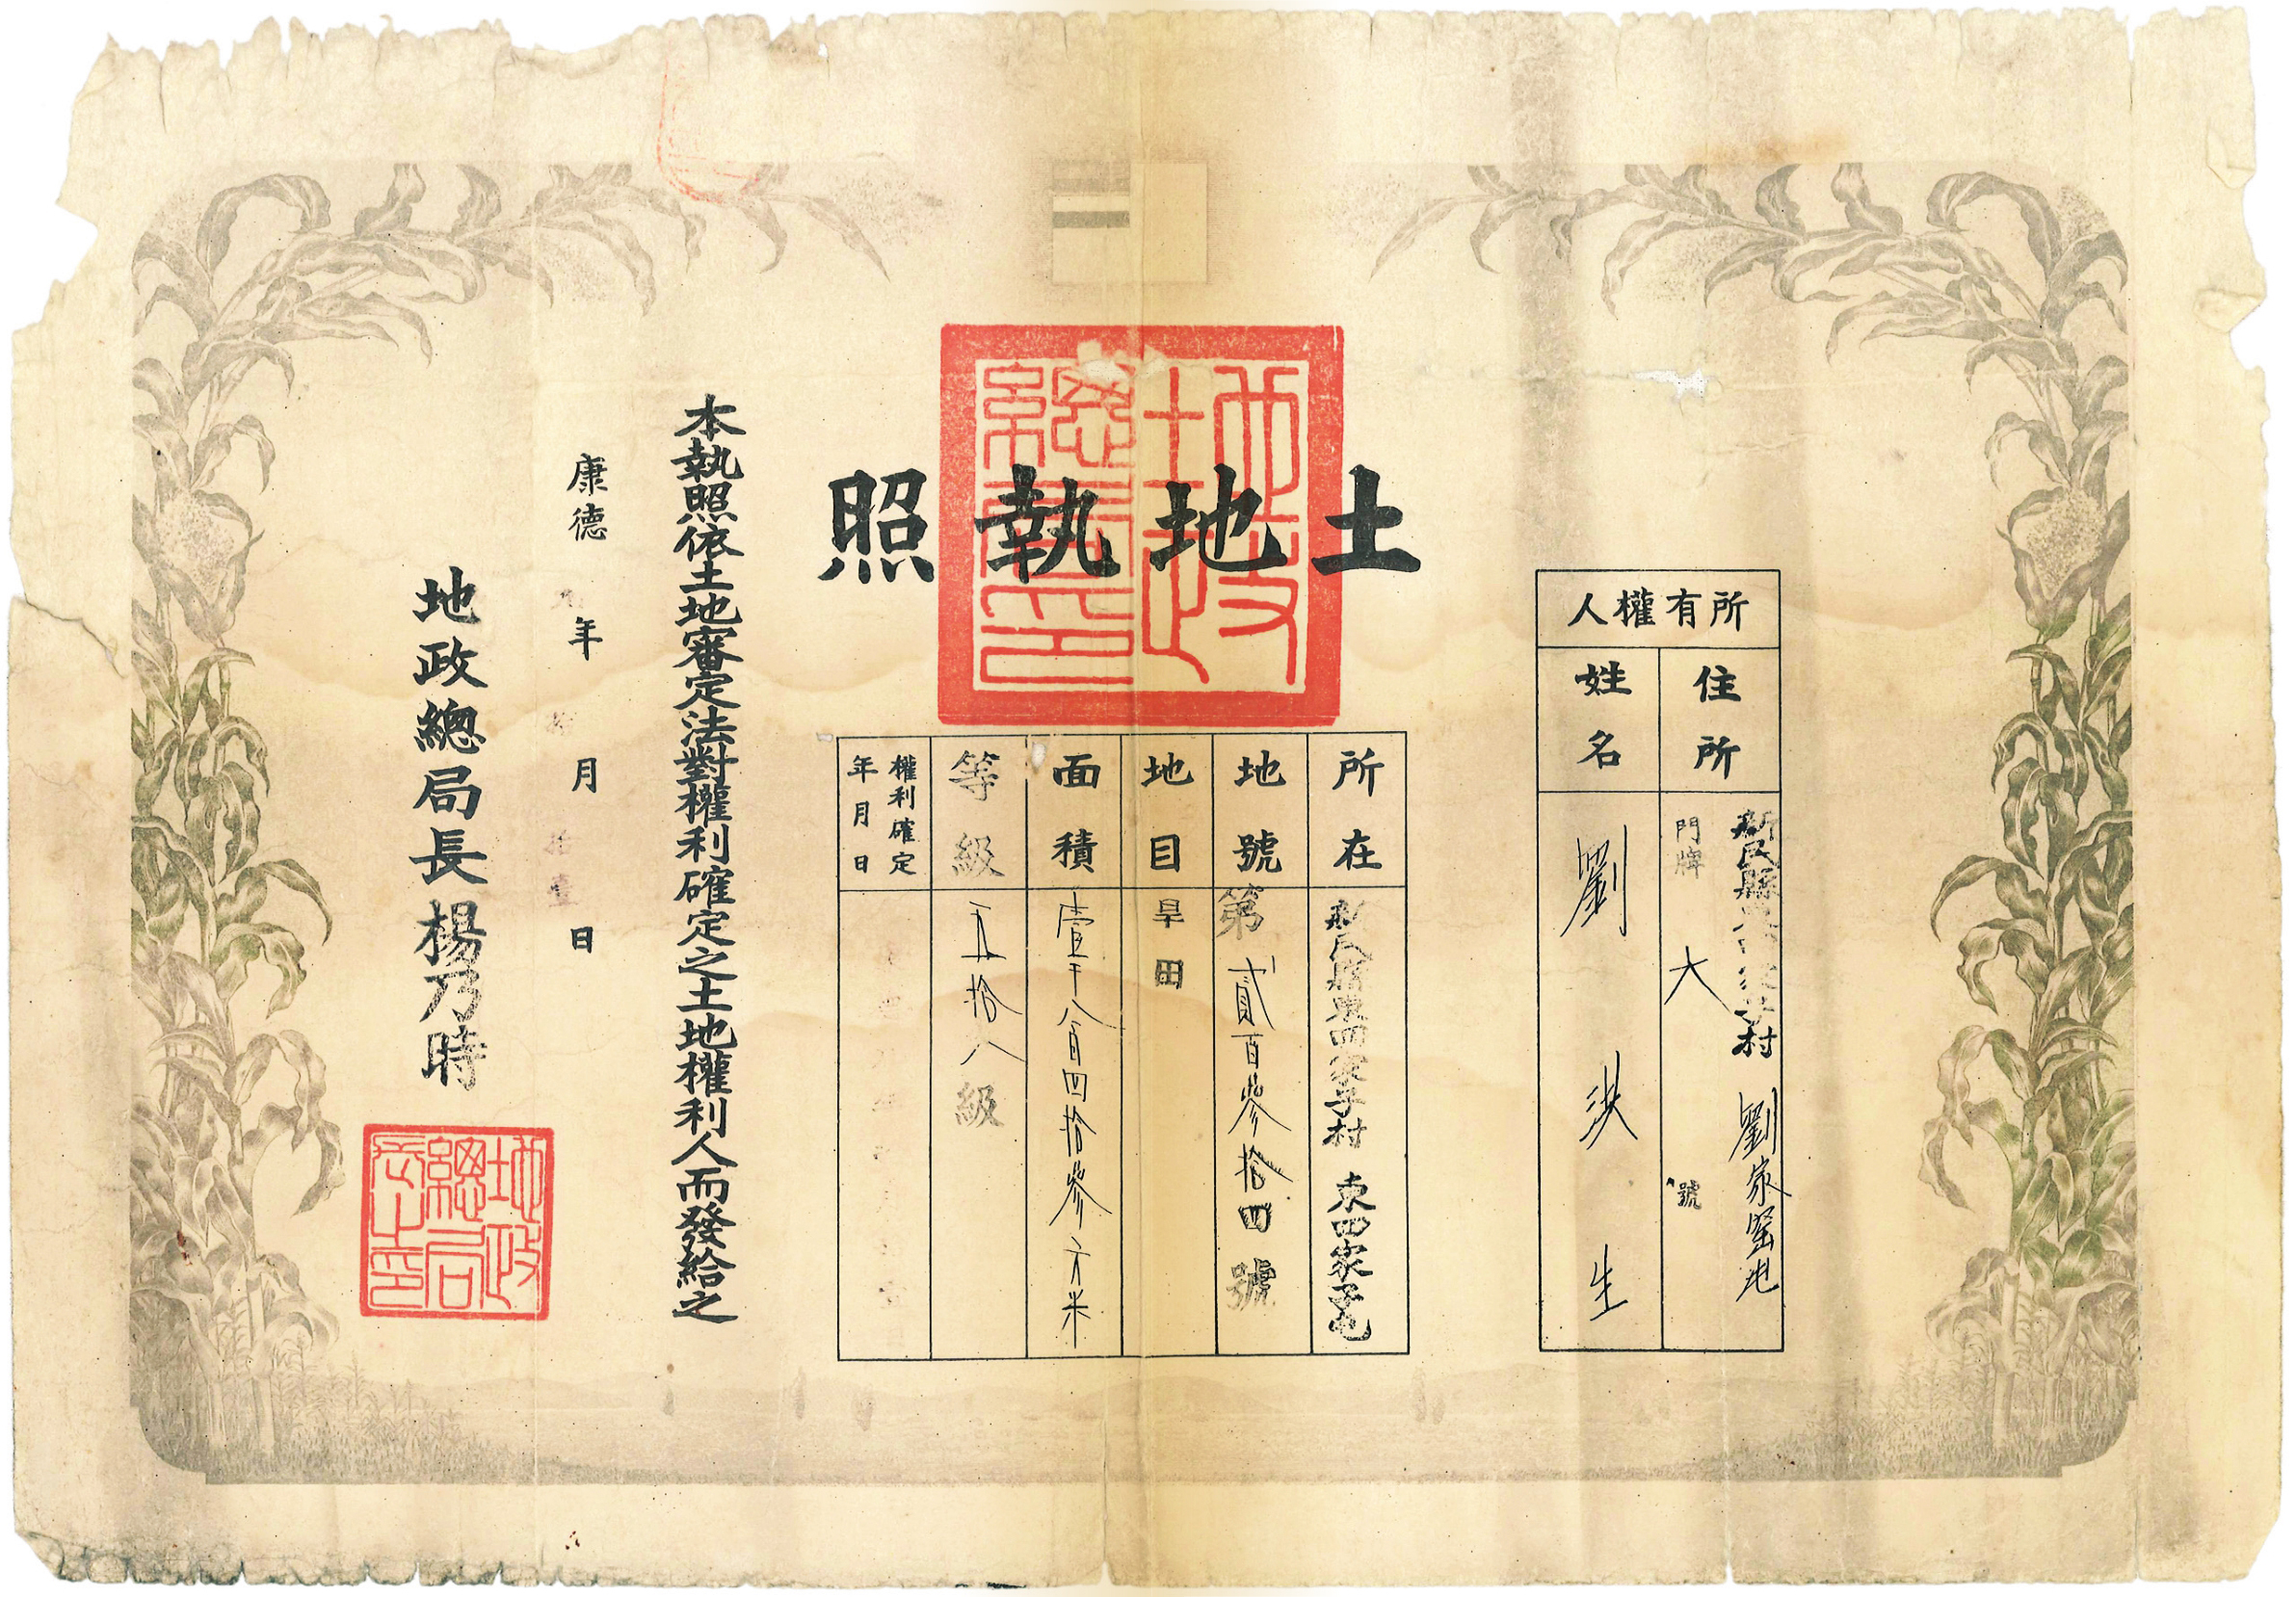 土地執照
所有權人
住所
新民縣東四家子村 劉家窑屯
門牌 六 號
姓名
劉洪生
所在
新民縣東四家子村 東四家子屯
地號
第貳百參拾四號
地目
旱田
面積
壹千八百四拾參方米
等級
五拾八級
權利確定
年月日
本執照依土地審定法對權利確定之土地權利人而發給之
康德 年 月拾壹日
地政總局長楊乃時
地政總局印
地政總局長之印